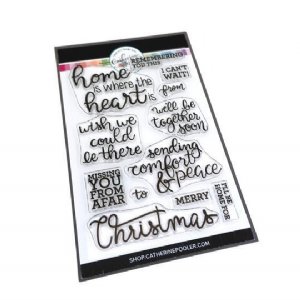 REMEMBERING
YOU THIS
home
is where the
heart is
I CAN'T
WAIT!
from
wish we
could
be there
we'll be
together
soon
sending
comfort
& peace
MISSING
YOU
FROM
AFAR
to
MERRY
I'LL BE
HOME FOR
Christmas
SHOP.CATHERINEPOOLER.COM